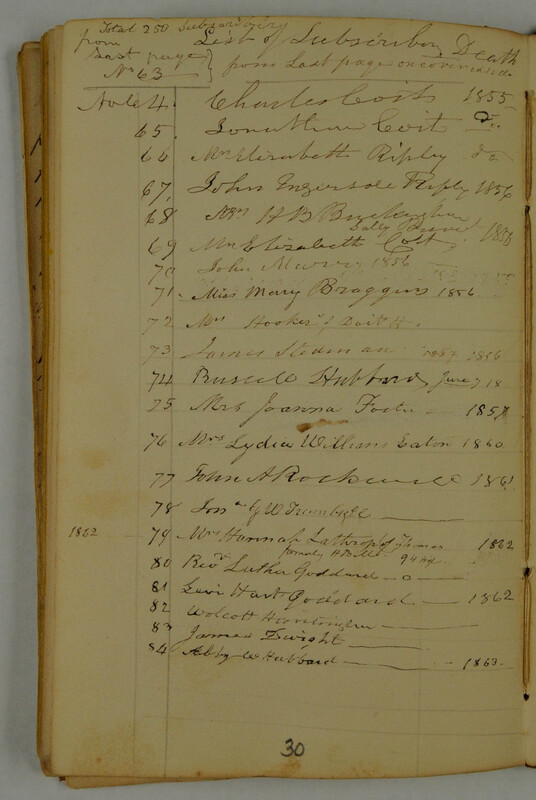 Total 250 Subscribing
from
Last page
No 63
List of Subscribers Death
from Last page on cover inside
No 64. Charles Coit 1855
65. Jonathan Coit Do.
66 Mrs Elizabeth Ripley do
67, John Ingersole Ripley 1856
68 Mrs H B Buckingham
Sally 1856
69 Mrs Elizabeth Coit
70 John 1856
71. Miss Mary Braggins 1856
72 Mrs Hooker
73 James Stedman 1857 1856
74 Russell Hubbard June 7 18
75 Mrs Joanna Foster 1857
76 Mrs Lydia Williams Eaton 1860
77 John A Rockwell 1861
78 G W Trumbull
1862 79 Mrs Hannah Lathrop of Thomas 1862
formerly 94
80 Revd Luther Goddard
81 Levi Hart Goddard 1862
82 Wolcott Huntington
83 James Dwight
84 Abby W Hubbard 1863
30